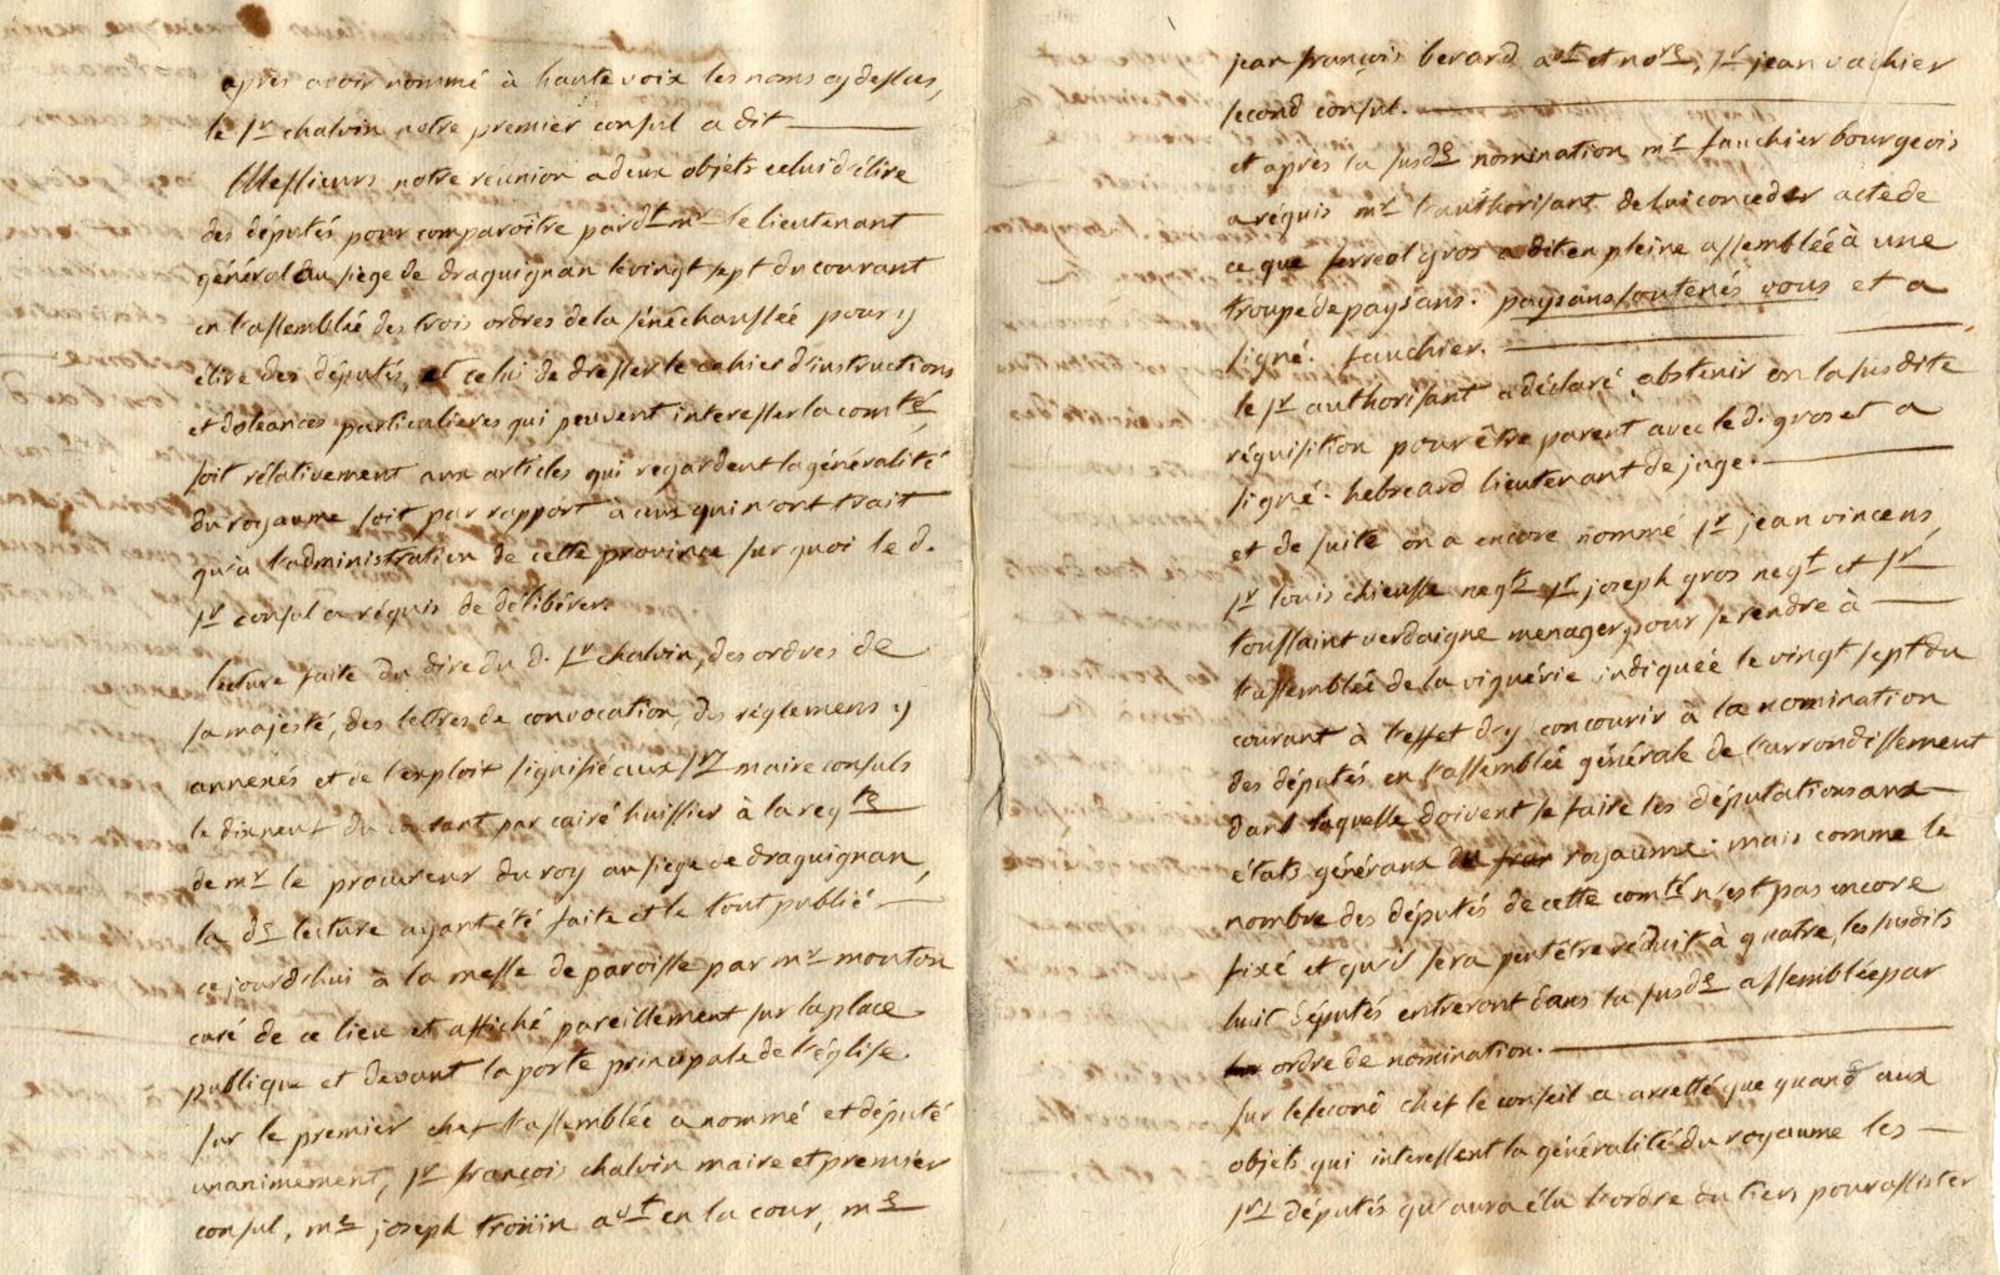 après avoir nommé à haute voix les noms cy dessus,
le sr chalvin notre premier consul a dit
Messieurs notre réunion a deux objets celui d'élire
des députés pour comparoître pardt mr le lieutenant
général au siège de draguignan le vingt sept du courant
en l'assemblée des trois ordres de la sénéchaussée pour y
élire des députés, et celui de dresser le cahier d'instructions
et doleances particulieres qui peuvent interesser la comté
soit rélativement aux articles qui regardent la généralité
du royaume soit par rapport à ceux qui n'ont trait
qu'à l'administration de cette province sur quoi le d.
sr consul a réquis de délibérer.
lecture faite du dire du d. sr chalvin, des ordres de
sa majesté, des lettres de convocation, des réglemens y
annexés et de l'exploit signifié aux srs maire consuls
le dixneuf du courant par cairé huissier à la reqte
de mr le procureur du roy au siege de draguignan,
la de lecture ayant été faite et le tout publié
ce jourd'hui à la messe de paroisse par mr mouton
curé de ce lieu et affiché pareillement sur la place
publique et devant la porte principale de l'église.
sur le premier chef l'assemblée a nommé et député
unanimement, sr françois chalvin maire et premier
consul, me joseph troüin avt en la cour, me
jean françois berard avt et nore, sr jean vachier
second consul.
et après la susde nomination mr fauchier bourgeois
a réquis mr l'authorisant de lui conceder acte de
ce que ferreol gros a dit en pleine assemblée à une
troupe de paysans. paysans soutenés vous et a
signé. fauchier.
le sr authorisant a déclaré abstenir en la susdite
réquisition pour être parent avec le d. gros et a
signé. hebreard lieutenant de juge.
et de suite on a encore nommé sr jean vincens,
sr louis chieusse negt sr joseph gros negt et sr
toussaint verdaigne menager, pour se rendre à
l'assemblée de la viguérie indiquée le vingt sept du
courant à l'effet d'y concourir à la nomination
des députés en l'assemblée générale de l'arrondissement
dans laquelle doivent se faire les députations aux
états généraux du royaume; mais comme le
nombre des députés de cette comté n'est pas encore
fixé et qu'il sera peut être réduit à quatre, les susdits
huit députés entreront dans la susde assemblée par
ordre de nomination.
sur le second chef le conseil a arretté que quand aux
objets qui interessent la généralité du royaume les
srs députés qu'aura élu l'ordre du tiers pour assister